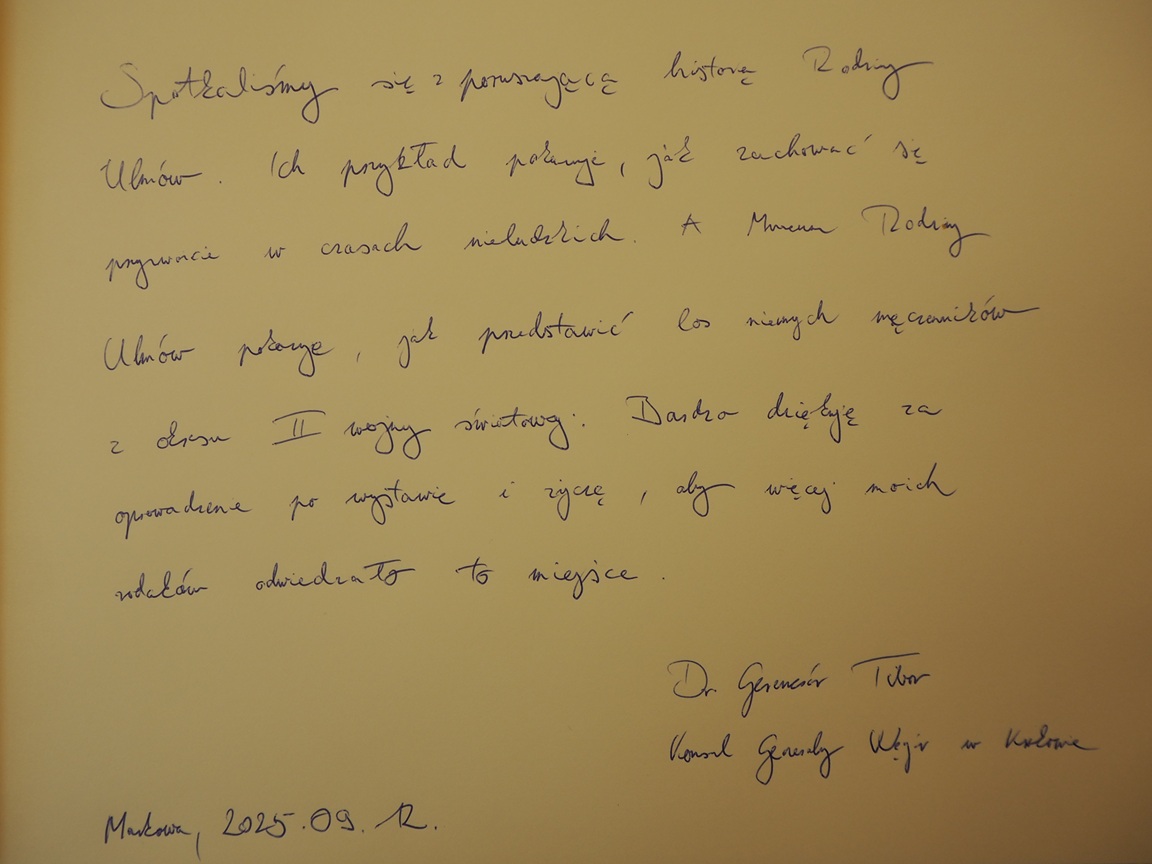 Spotkaliśmy się z poruszającą historią Rodziny
Ulmów. Ich przykład pokazuje, jak zachować się
przyzwoicie w czasach nieludzkich. A Muzeum Rodziny
Ulmów pokazuje, jak przedstawić los niemych męczenników
z okresu II wojny światowej. Bardzo dziękuję za
oprowadzenie po wystawie i życzę, aby więcej moich
rodaków odwiedzało to miejsce.
Dr. Gerencsér Tibor
Konsul Generalny Węgier w Krakowie
Markowa, 2025.09.12.